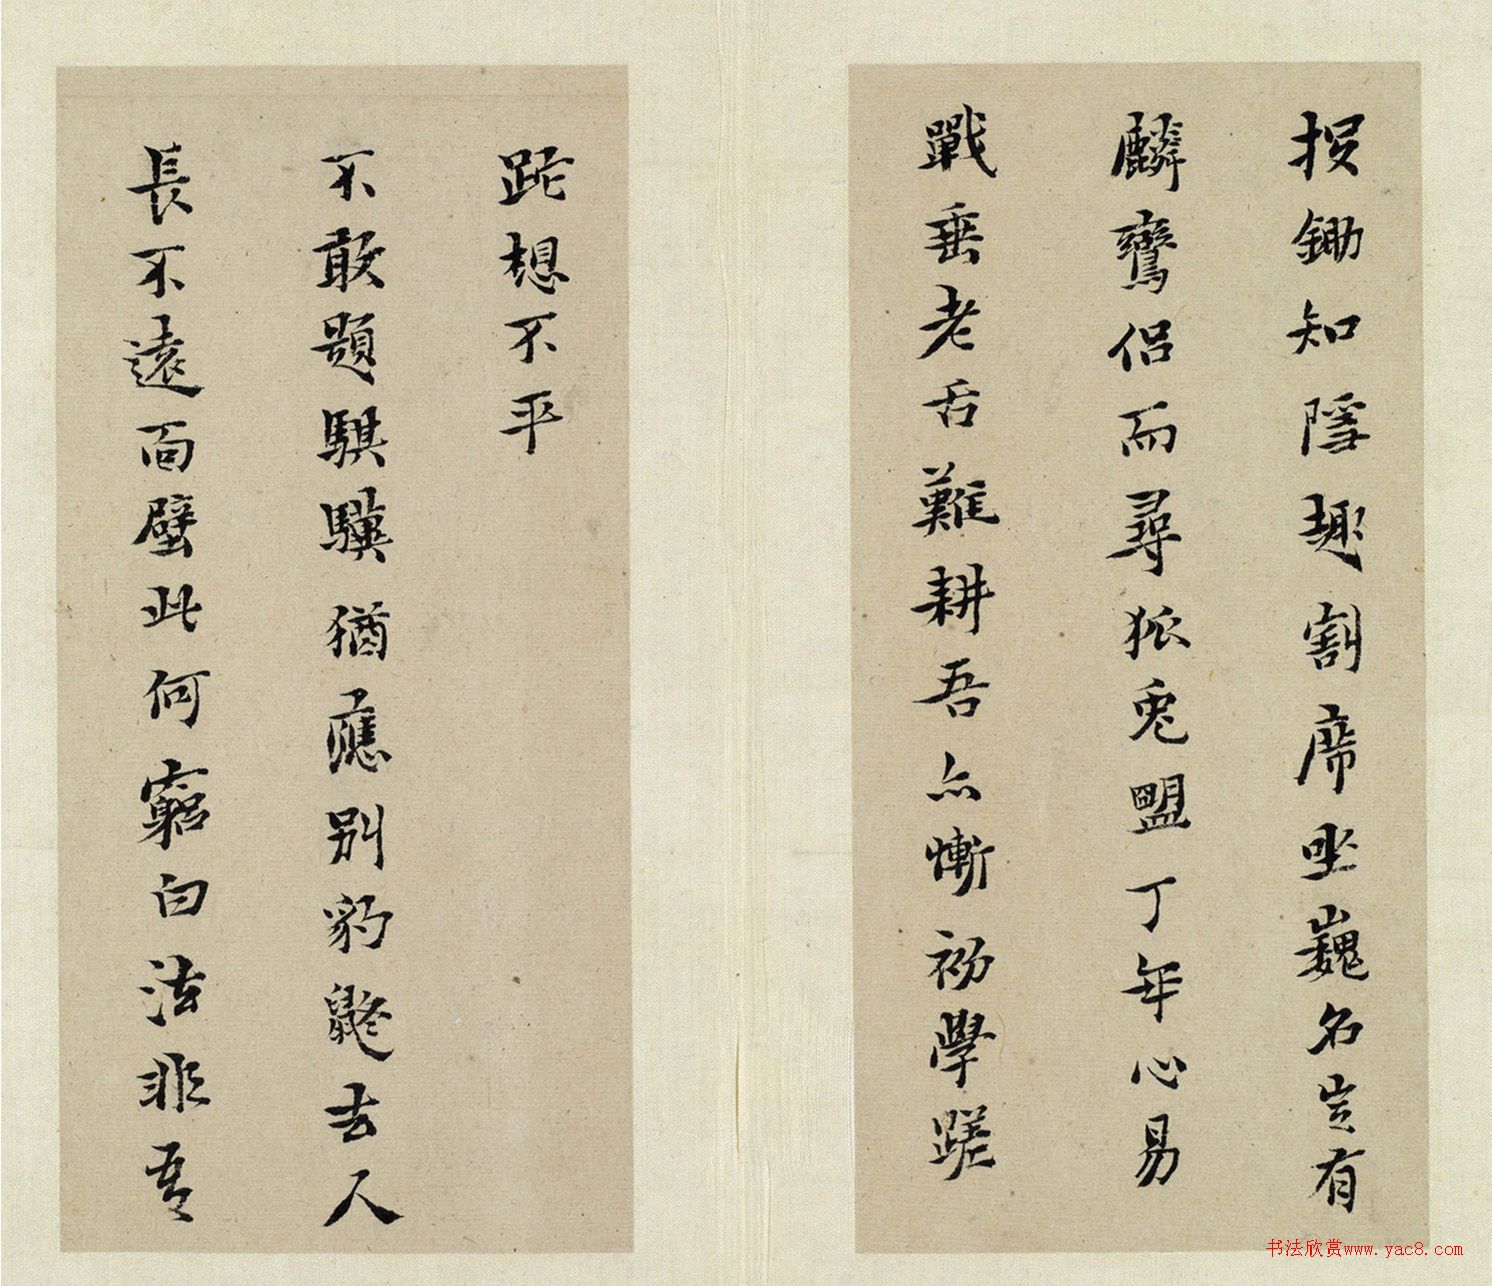 投鋤知隱趣割席坐巍名豈有
麟鸞侶而尋狐兔盟丁年心易
戰垂老舌難耕吾亦慚初學蹉
跎想不平
不敢題騏驥猶應別豹鼨去人
長不遠面壁此何窮白法非吾
书法欣赏www.yac8.com